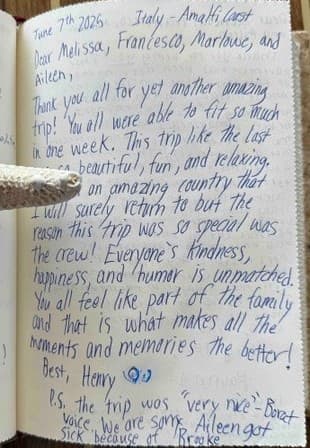 June 7th 2025 Italy - Amalfi Coast
Dear Melissa, Francesco, Marlowe, and
Aileen,
Thank you all for yet another amazing
trip! You all were able to fit so much
in one week. This trip like the last
so beautiful, fun, and relaxing.
an amazing country that
I will surely return to but the
reason this trip was so special was
the crew! Everyone's kindness,
happiness, and humor is unmatched.
You all feel like part of the family
and that is what makes all the
moments and memories the better!
Best, Henry
P.S. the trip was "very nice" - Borat
voice. We are sorry Aileen got
sick because of Brooke